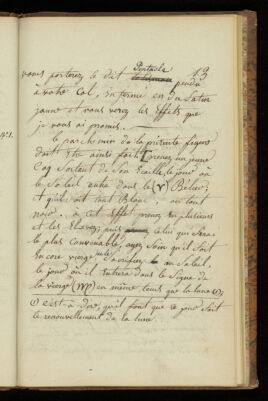 13
Pentacle
vous porterez le dit talisman pendu
à votre Col, Enfermé en du Satin
jaune et vous verez les Effets que
je vous ai promis.
le parchemin de la présente figure
doit Etre ainsi fait [prenez un jeune
Coq Sortant de Son Ecaille, le jour où
le Soleil entre dans le (♈) Bélier;
et qu'il soit tout Blanc, ou tout
noir. à cet Effet prenez en plusieurs
et les Elevez; puis celui qui Sera
le plus Convenable, ayez Soin qu'il Soit
Encore vierge, Sacrifiez le au Soleil,
le jour où il Entrera dans le Signe de
la vierge (♍) en même tems que la lune;
C'est à dire, qu'il faut que ce jour Soit
le renouvellement de la lune.